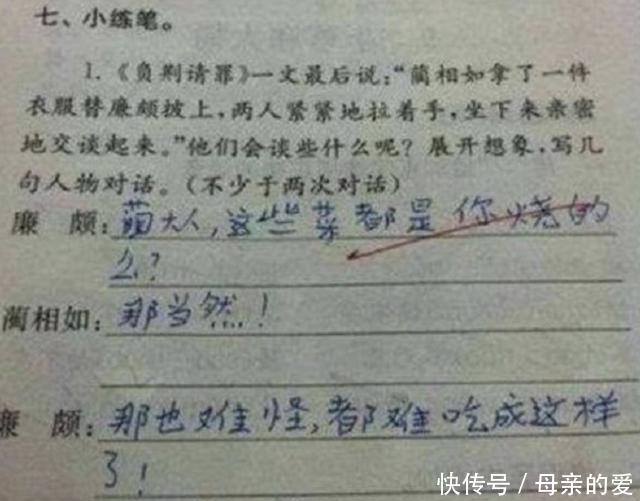 七、小练笔。
1.《负荆请罪》一文最后说:“蔺相如拿了一件
衣服替廉颇披上,两人紧紧地拉着手,坐下来亲密
地交谈起来。”他们会谈些什么呢?展开想象,写几
句人物对话。(不少于两次对话)
廉 颇:蔺大人,这些菜都是你烧的
么?
蔺相如:那当然!
廉 颇:那也难怪,都难吃成这样
了!
快传号/母亲的爱